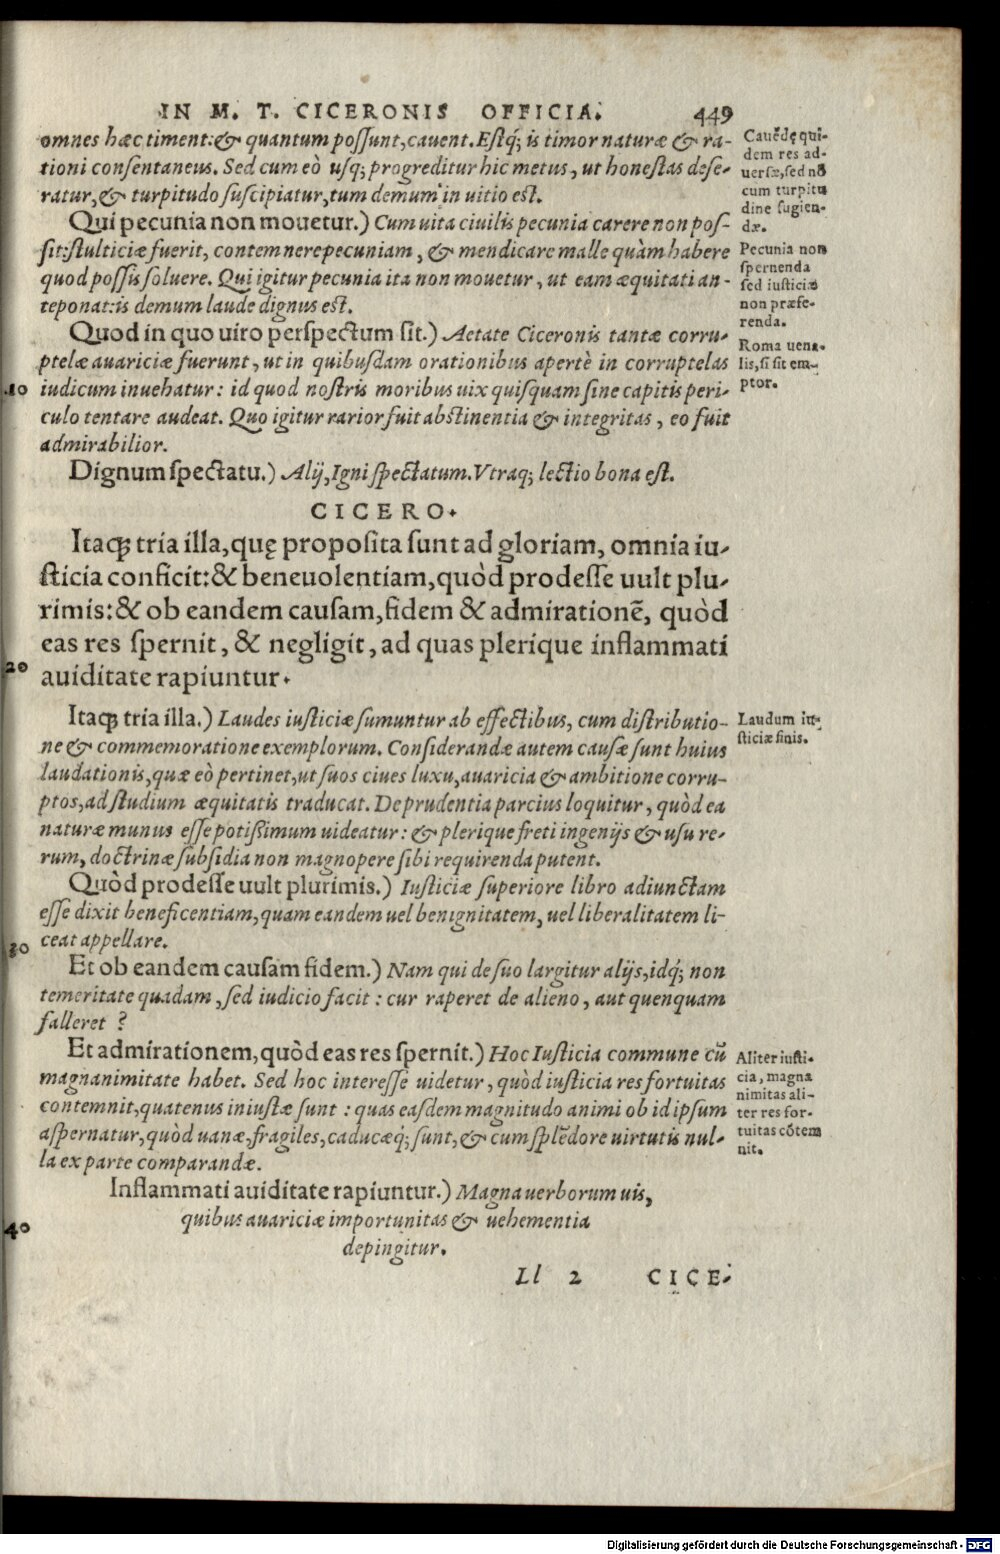 IN M. T. CICERONIS OFFICIA. 449
omnes hæc timent:& quantum possunt,cauent.Estq́; is timor naturæ & ra-
tioni consentaneus. Sed cum eò usq; progreditur hic metus, ut honestas dese-
ratur,& turpitudo suscipiatur,tum demum in uitio est.
Qui pecunia non mouetur.) Cum uita ciuilis pecunia carere non pos-
sit:stulticiæ fuerit, contemnere pecuniam, & mendicare malle quàm habere
quod possis soluere. Qui igitur pecunia ita non mouetur, ut eam æquitati an-
teponat:is demum laude dignus est.
Quod in quo uiro perspectum sit.) Aetate Ciceronis tantæ corru-
ptelæ auariciæ fuerunt, ut in quibusdam orationibus apertè in corruptelas
10 iudicum inuehatur: id quod nostris moribus uix quisquam sine capitis peri-
culo tentare audeat. Quo igitur rarior fuit abstinentia & integritas, eo fuit
admirabilior.
Dignum spectatu.) Alij, Igni spectatum. Vtraq; lectio bona est.
Cauẽdę qui-
dem res ad-
uersæ,sed nõ
cum turpitu
dine fugien-
dæ.
Pecunia non
spernenda
sed iusticiæ
non præfe-
renda.
Roma uena-
lis,si sit em-
ptor.
CICERO.
Itaq; tria illa,quę proposita sunt ad gloriam, omnia iu-
sticia conficit:& beneuolentiam,quòd prodesse uult plu-
rimis:& ob eandem causam,fidem & admirationẽ, quòd
eas res spernit, & negligit, ad quas plerique inflammati
20 auiditate rapiuntur.
Itaq; tria illa.) Laudes iusticiæ sumuntur ab effectibus, cum distributio-
ne & commemoratione exemplorum. Considerandæ autem causæ sunt huius
laudationis,quæ eò pertinet,ut suos ciues luxu,auaricia & ambitione corru-
ptos,ad studium æquitatis traducat. De prudentia parcius loquitur, quòd ea
naturæ munus esse potißimum uideatur: & plerique freti ingenijs & usu re-
rum, doctrinæ subsidia non magnopere sibi requirenda putent.
Quòd prodesse uult plurimis.) Iusticiæ superiore libro adiunctam
esse dixit beneficentiam,quam eandem uel benignitatem, uel liberalitatem li-
30 ceat appellare.
Et ob eandem causam fidem.) Nam qui de suo largitur alijs,idq́; non
temeritate quadam, sed iudicio facit: cur raperet de alieno, aut quenquam
falleret ?
Et admirationem,quòd eas res spernit.) Hoc Iusticia commune cũ
magnanimitate habet. Sed hoc interesse uidetur, quòd iusticia res fortuitas
contemnit,quatenus iniustæ sunt: quas easdem magnitudo animi ob id ipsum
aspernatur,quòd uanæ,fragiles,caducæq́; sunt,& cum splẽdore uirtutis nul-
la ex parte comparandæ.
Inflammati auiditate rapiuntur.) Magna uerborum uis,
40 quibus auariciæ importunitas & uehementia
depingitur.
Laudum iu-
sticiæ finis.
Aliter iusti-
cia, magna
nimitas ali-
ter res for-
tuitas cõtem
nit.
Ll 2 CICE-
Digitalisierung gefördert durch die Deutsche Forschungsgemeinschaft - DFG